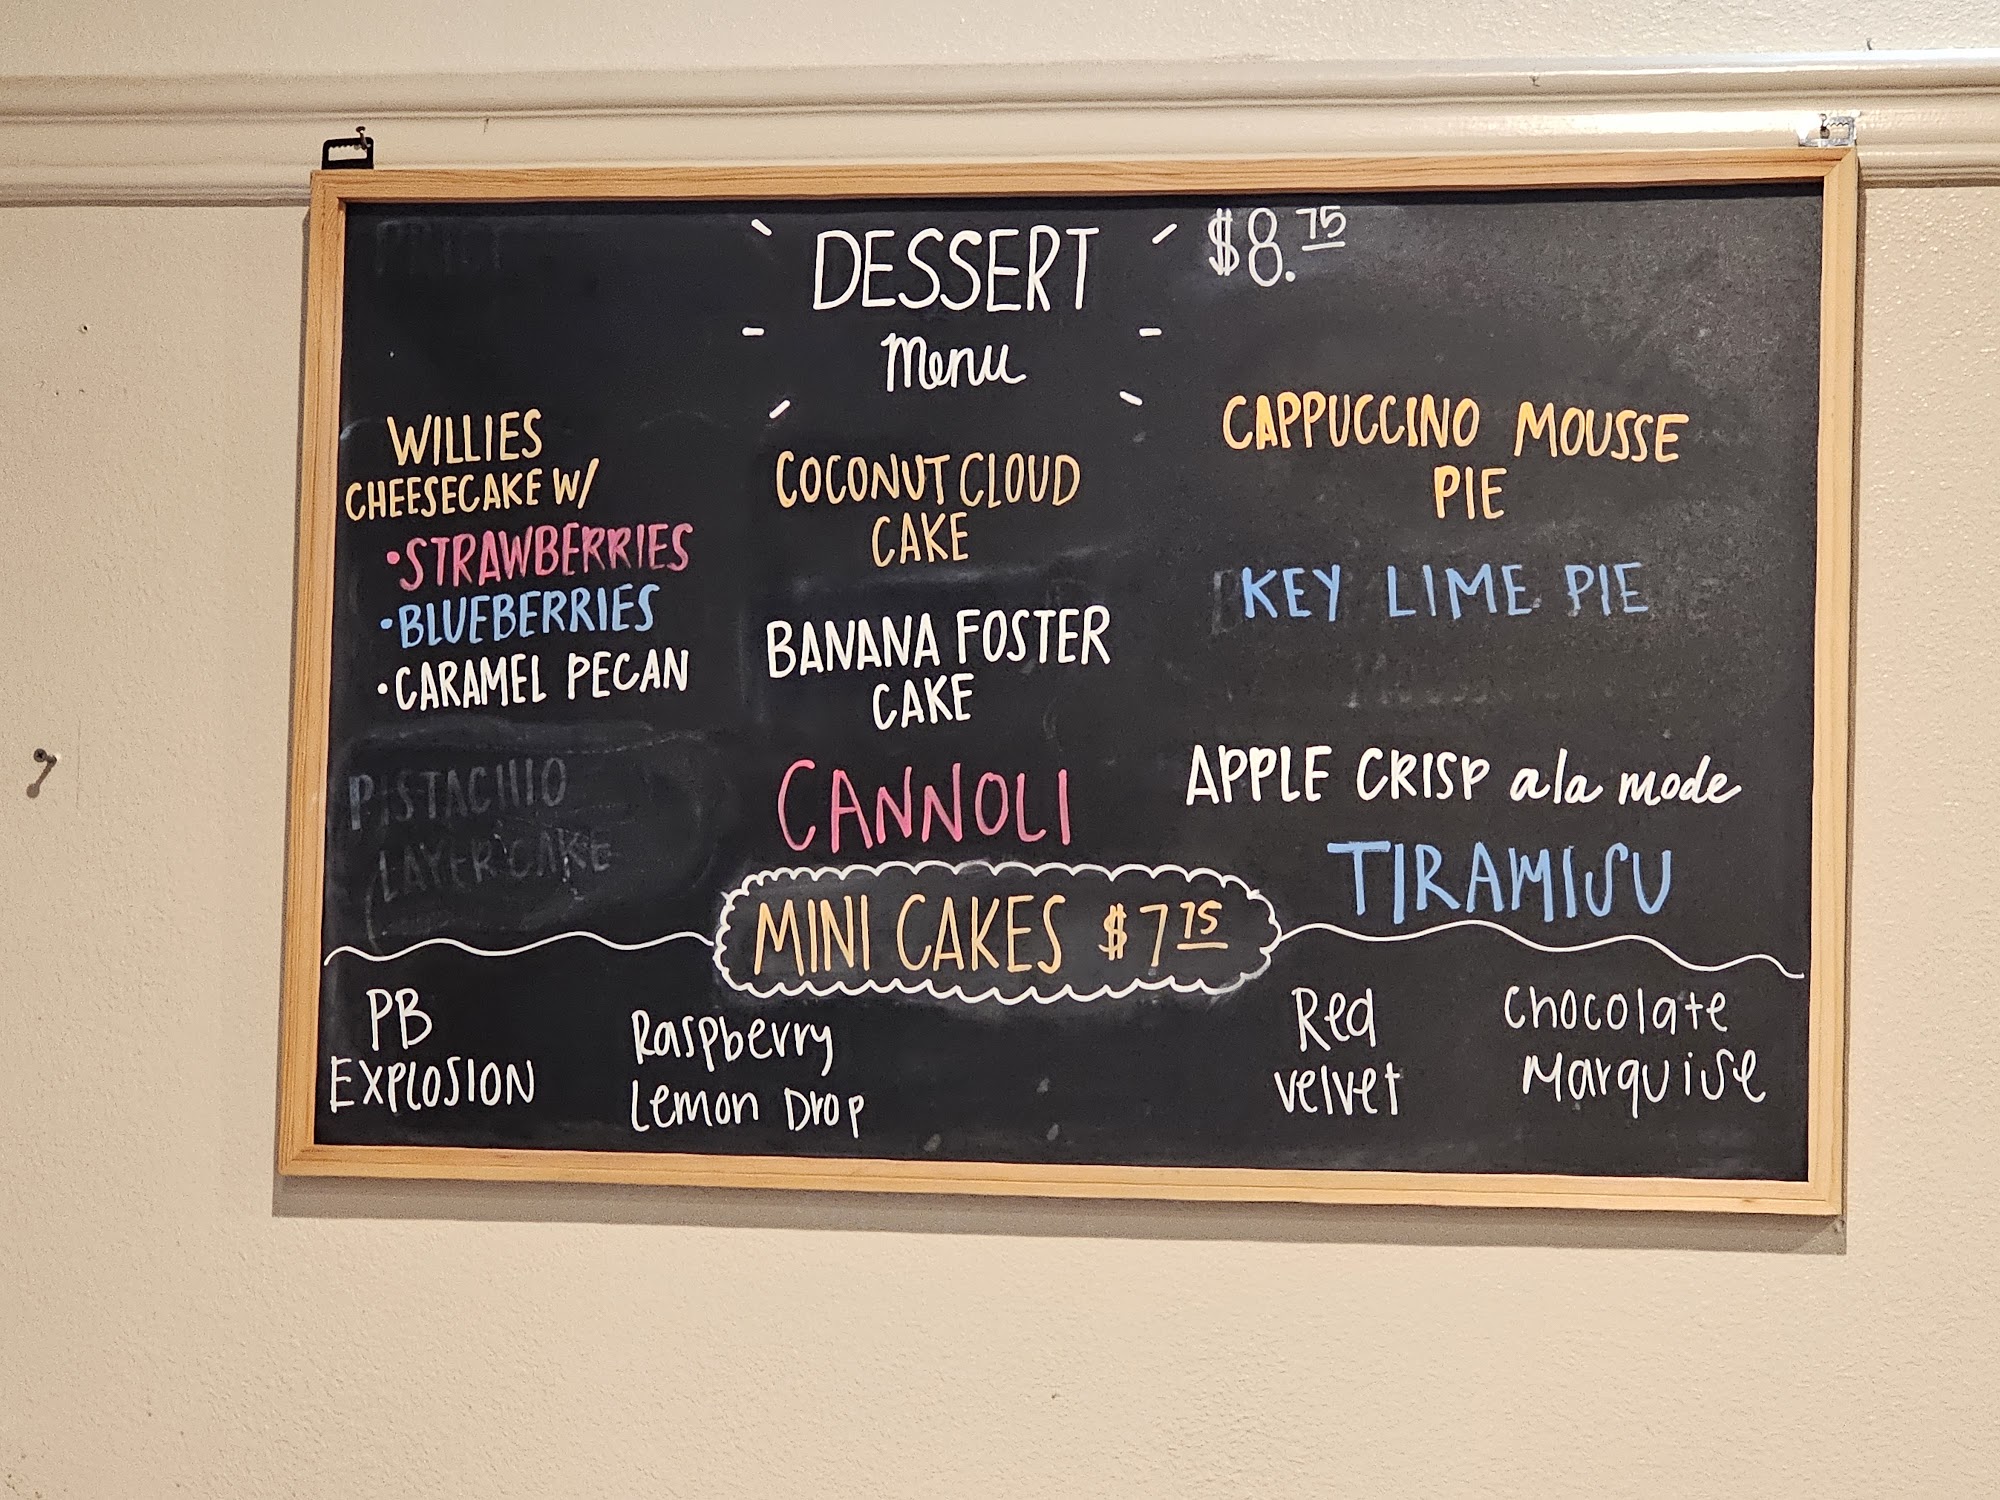 DESSERT
menu
$8.75
WILLIES
CHEESECAKE W/
•STRAWBERRIES
•BLUEBERRIES
•CARAMEL PECAN
PISTACHIO
LAYER CAKE
COCONUT CLOUD
CAKE
BANANA FOSTER
CAKE
CANNOLI
CAPPUCCINO MOUSSE
PIE
KEY LIME PIE
APPLE CRISP a la mode
TIRAMISU
MINI CAKES $7 75
PB
EXPLOSION
Raspberry
Lemon Drop
Red
Velvet
Chocolate
Marquise